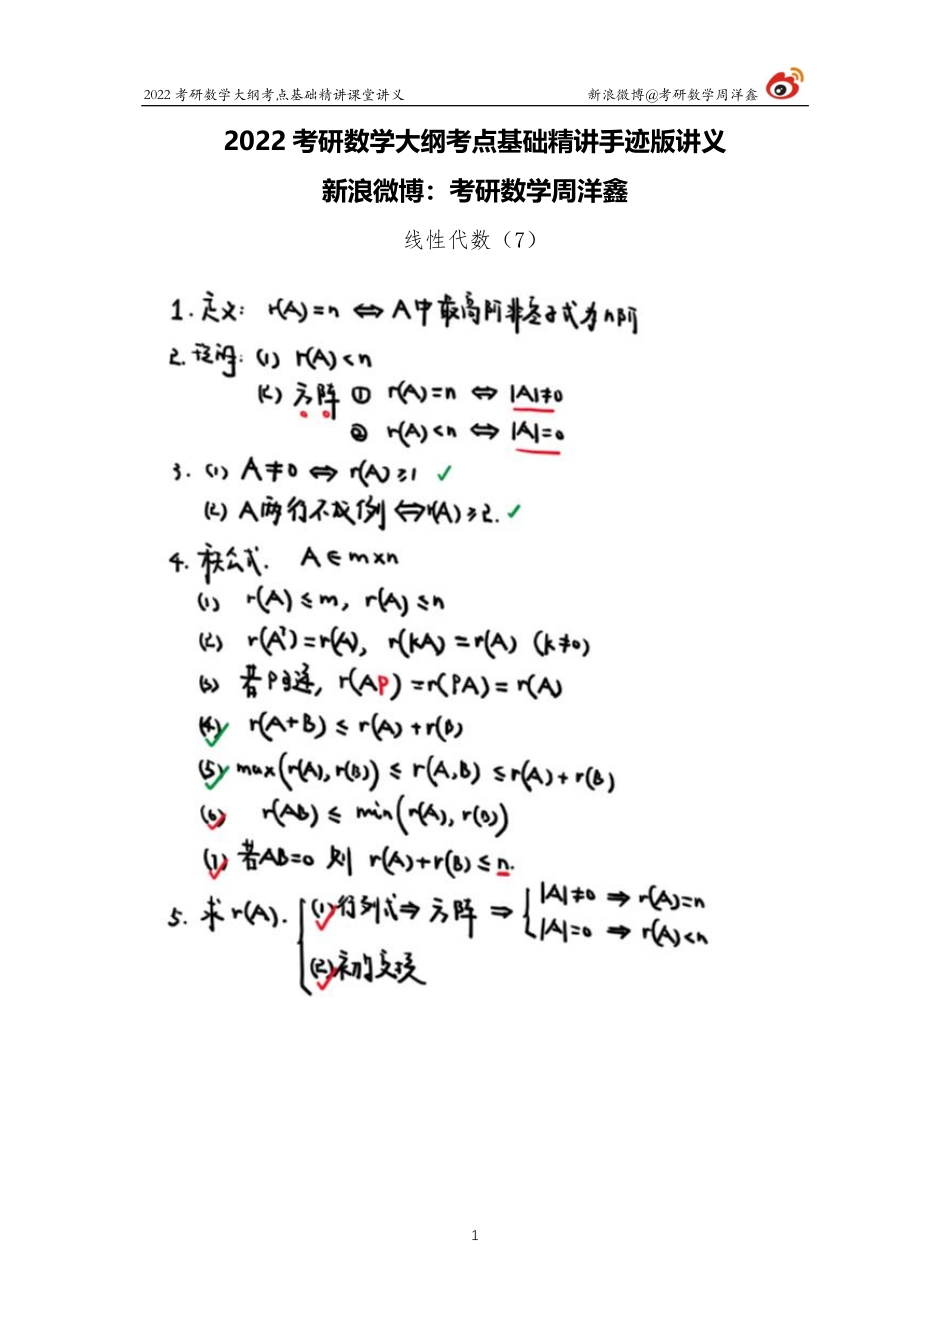 2022 考研数学大纲考点基础精讲课堂讲义 新浪微博@考研数学周洋鑫
2022 考研数学大纲考点基础精讲手迹版讲义
新浪微博：考研数学周洋鑫
线性代数（7）
1. 定义: r(A)=n ⇔ A中最高阶非零子式为n阶
2. 证明: (1) r(A)<n
(2) 方阵 ① r(A)=n ⇔ |A|≠0
② r(A)<n ⇔ |A|=0
3. (1) A≠0 ⇔ r(A)≥1 ✓
(2) A两行不成例 ⇔ r(A)≥2. ✓
4. 秩公式. A∈m×n
(1) r(A)≤m, r(A)≤n
(2) r(Aᵀ)=r(A), r(kA)=r(A) (k≠0)
(3) 若P可逆, r(AP)=r(PA)=r(A)
(4) r(A+B)≤r(A)+r(B)
(5) max(r(A),r(B))≤r(A,B)≤r(A)+r(B)
(6) r(AB)≤min(r(A),r(B))
(7) 若AB=0 则 r(A)+r(B)≤n.
5. 求r(A). (1) 行列式⇒方阵⇒ |A|≠0 ⇒ r(A)=n
|A|=0 ⇒ r(A)<n
(2) 初的变换
1